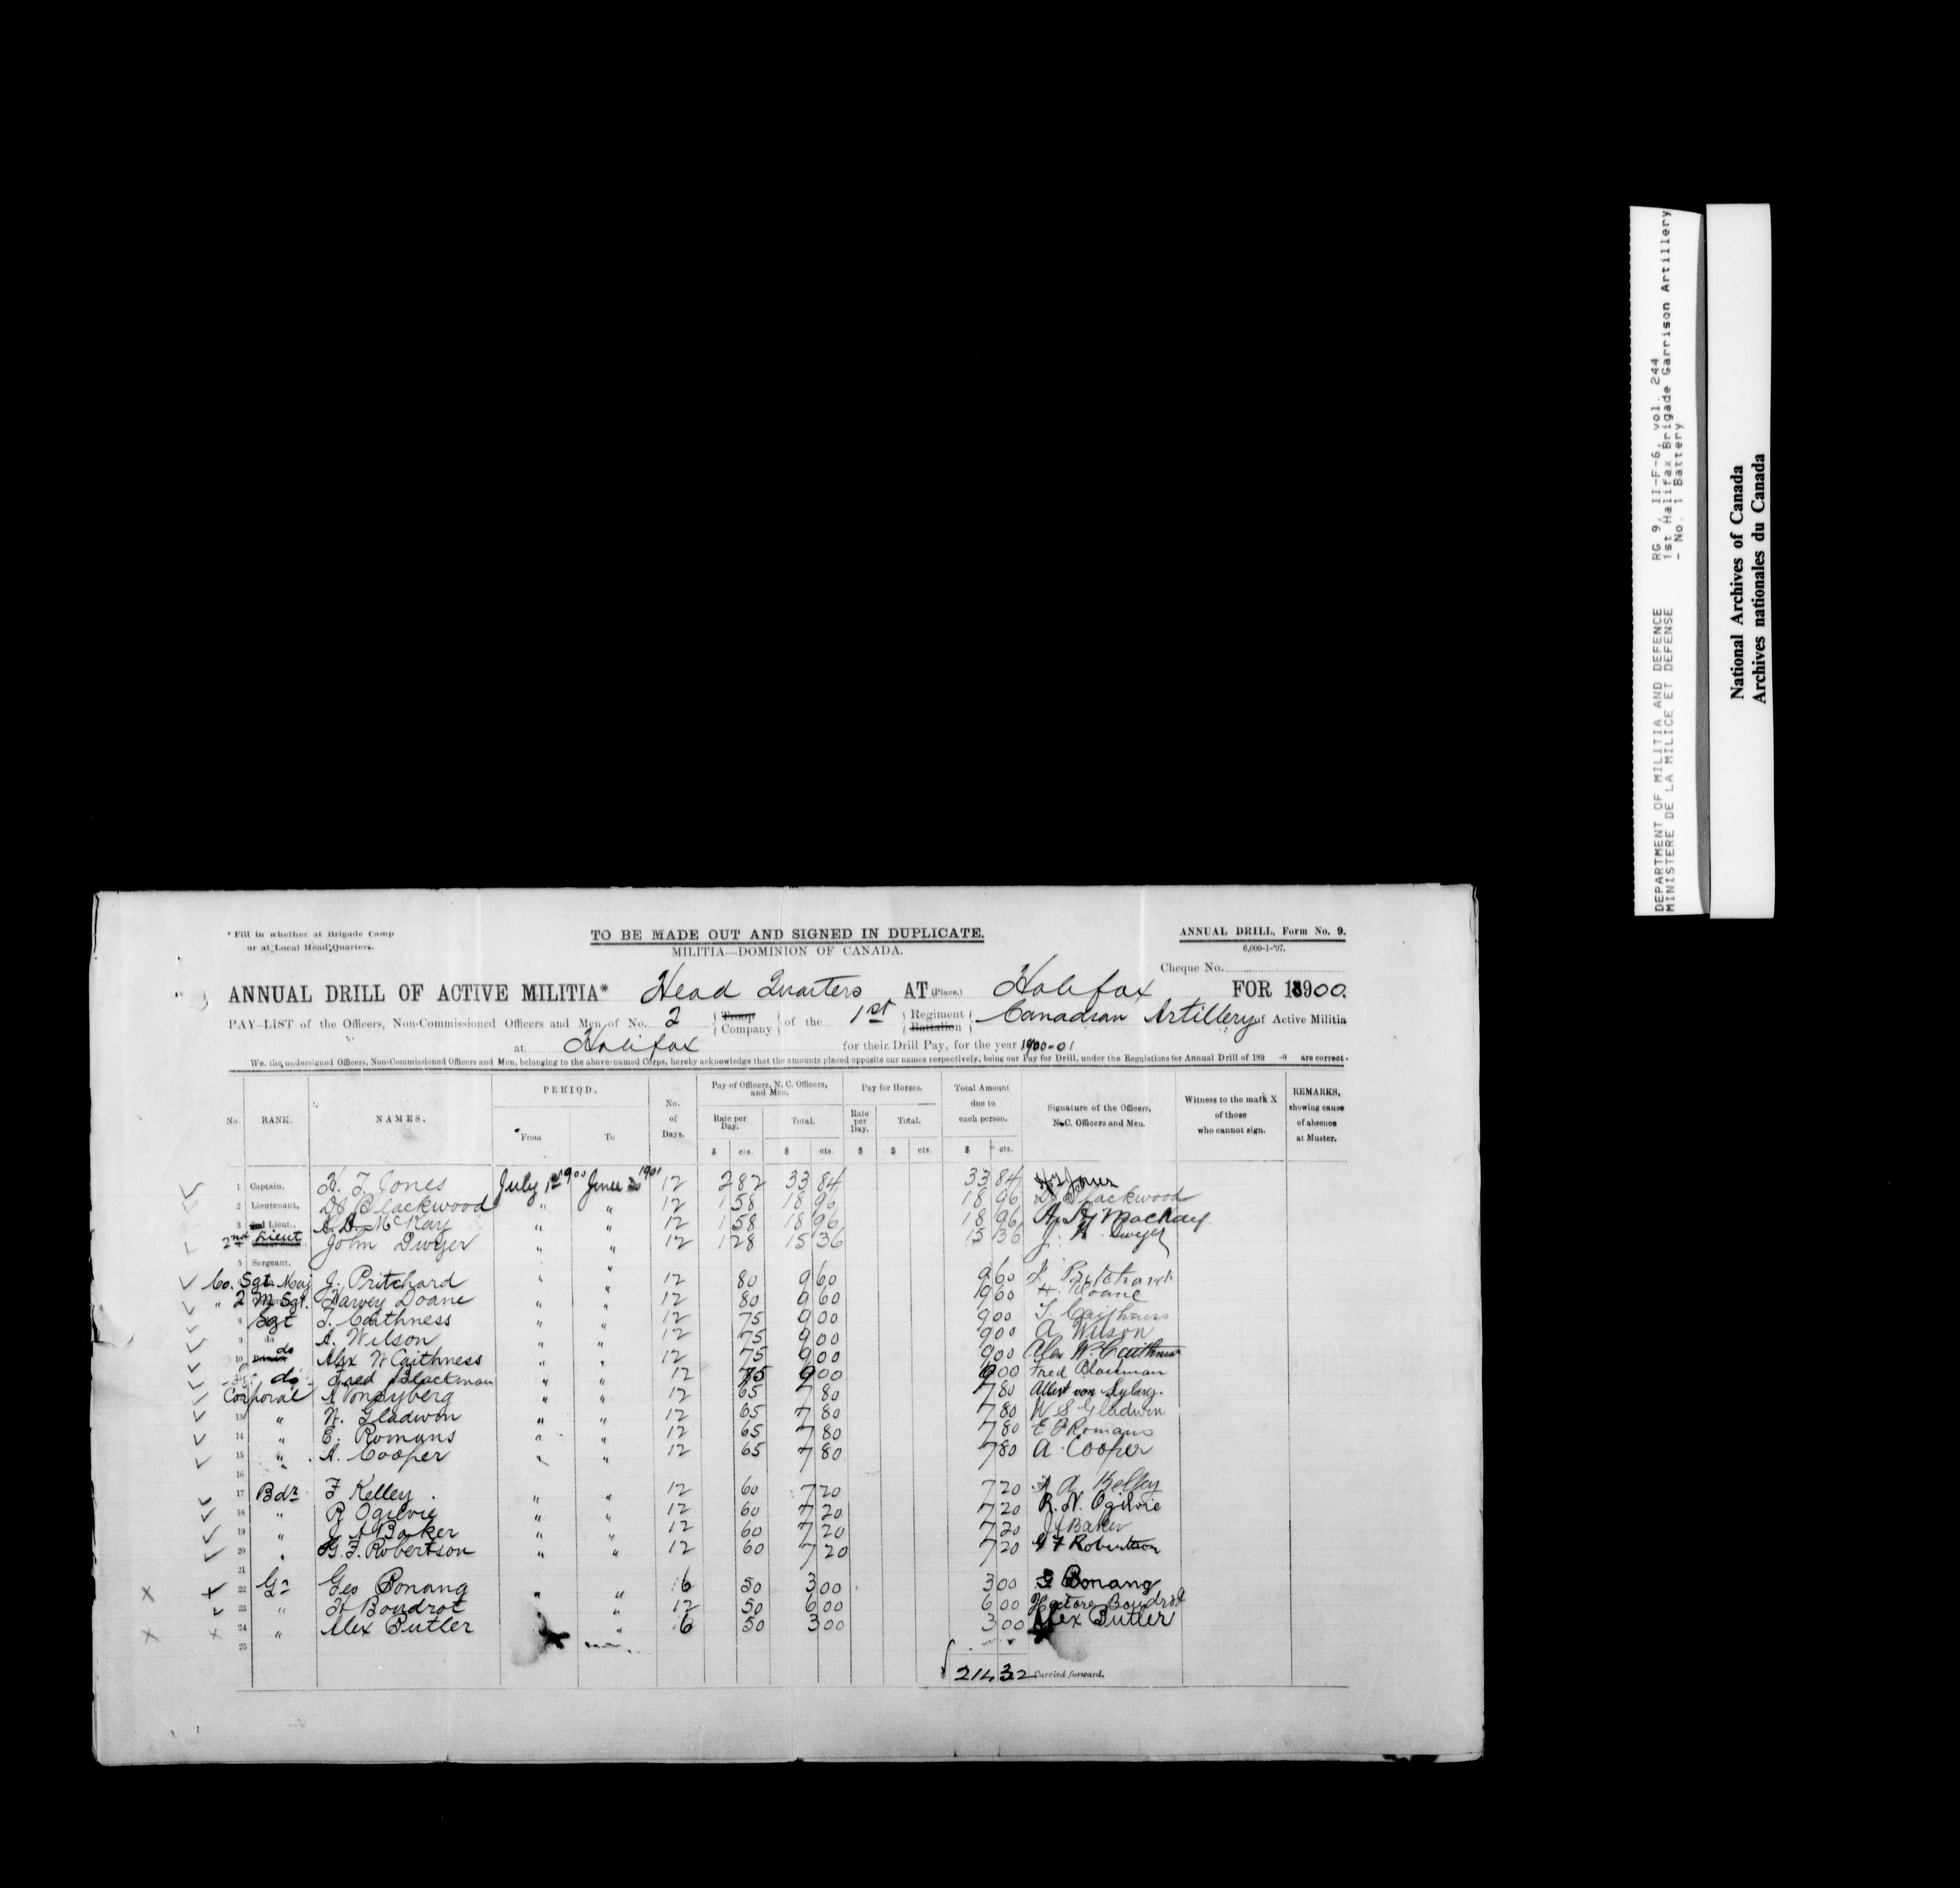 * Fill in whether at Brigade Camp
or at Local Head Quarters.
TO BE MADE OUT AND SIGNED IN DUPLICATE.
MILITIA—DOMINION OF CANADA.
ANNUAL DRILL, Form No. 9.
6,000-1-'97.
Cheque No.
ANNUAL DRILL OF ACTIVE MILITIA* Head Quarters AT (Place.) Halifax FOR 1900.
PAY-LIST of the Officers, Non-Commissioned Officers and Men of No. 2 Troop Company of the 1st Regiment Battalion Canadian Artillery of Active Militia
at Halifax for their Drill Pay, for the year 1900-01
We, the undersigned Officers, Non-Commissioned Officers and Men, belonging to the above-named Corps, hereby acknowledge that the amounts placed opposite our names respectively, being our Pay for Drill, under the Regulations for Annual Drill of 189 -9 are correct.
No. RANK. NAMES. PERIOD. From To No. of Days. Pay of Officers, N. C. Officers, and Men. Rate per Day. Total. Pay for Horses. Rate per Day. Total. Total Amount due to each person. Signature of the Officers, N.C. Officers and Men. Witness to the mark X of those who cannot sign. REMARKS, showing cause of absence at Muster.
$ cts. $ cts. $ $ cts. $ cts.
1 Captain, H. F. Jones July 1st 1900 June 30 1901 12 2 82 33 84 33 84
2 Lieutenant, Blackwood " " 12 1 58 18 96 18 96 Blackwood
3 2nd Lieut., A. A. McKay " " 12 1 58 18 96 18 96 A. A. Mackay
2nd Lieut John Dwyer " " 12 1 28 15 36 15 36 J. Dwyer
5 Sergeant, "
Co. Sgt. Maj J. Pritchard " " 12 80 9 60 9 60 J. Pritchard
" 2 M Sgt. Harvey Doane " " 12 80 9 60 9 60 H. Doane
8 Sgt T. Caithness " " 12 75 9 00 9 00 T. Caithness
9 do A. Wilson " " 12 75 9 00 9 00 A Wilson
10 do Alex W Caithness " " 12 75 9 00 9 00 Alex W. Caithness
do Fred Blackman " " 12 75 9 00 9 00 Fred Blackman
Corporal A Voneyberg " " 12 65 7 80 7 80 Albert von
13 " W. Gladwin " " 12 65 7 80 7 80 W S Gladwin
14 " E. Romans " " 12 65 7 80 7 80 E F Romans
15 " A. Cooper " " 12 65 7 80 7 80 A Cooper
16
17 Bdr F Kelley " " 12 60 7 20 7 20 A Kelley
18 " R Ogilvie " " 12 60 7 20 7 20 R. N. Ogilvie
19 " J A Baker " " 12 60 7 20 7 20 J A Baker
20 " G. F. Robertson " " 12 60 7 20 7 20 G F Robertson
21
22 Gr Geo Bonang " " 6 50 3 00 3 00 G Bonang
23 " H Boudrot " " 12 50 6 00 6 00 Hectore Boudrot
24 " Alex Butler " 6 50 3 00 3 00 Alex Butler
25
214 32 Carried forward.
DEPARTMENT OF MILITIA AND DEFENCE RG 9, II-F-6, vol. 244
MINISTERE DE LA MILICE ET DEFENSE 1st Halifax Brigade Garrison Artillery
- No. 1 Battery
National Archives of Canada
Archives nationales du Canada